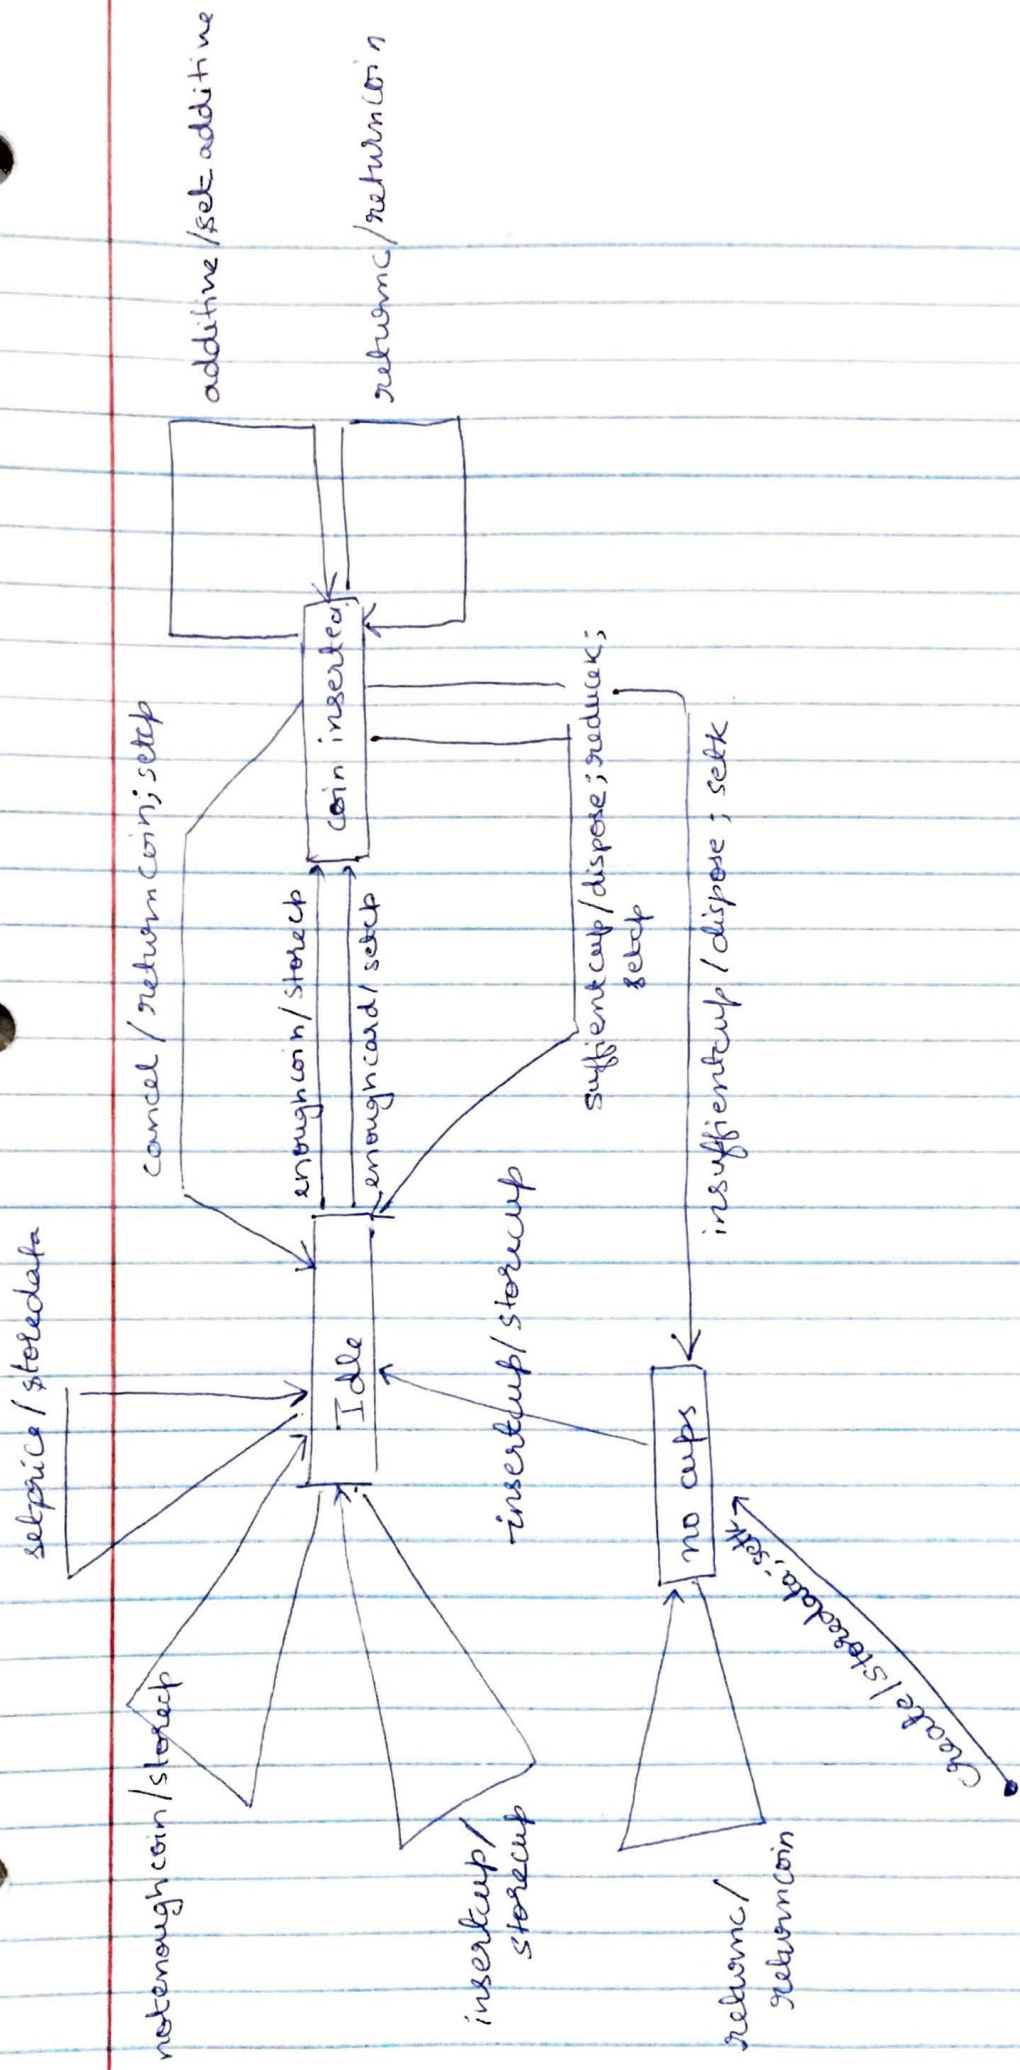 setprice/storedata
cancel/returncoin;setcp
additive/set additive
returnc/returncoin
notenoughcoin/storecp
Idle
enoughcoin/storecp
enoughcard/setcp
coin inserted
insertcup/
storecup
insertcup/storecup
suffientcup/dispose;reducek;
setcp
insuffientcup/dispose; setk
no cups
returnc/
returncoin
Create/storedata;setk